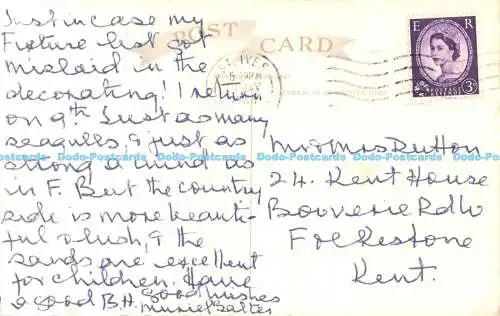 Just in case my
Fixture list got
mislaid in the
decorating! I return
on 9th. Just as many
seagulls, & just as
strong a wind as
in F. But the country
side is more beauti-
ful & lush, & the
sands are excellent
for children. Have
a good B.H. good wishes
Muriel Baltes
POST CARD
ST IVES
E R
POSTAGE REVENUE
3D
Mr & Mrs Dutton
24. Kent House
Bouverie Rd W
Folkestone
Kent.
Dodo-Postcards Dodo-Postcards Dodo-Postcards Dodo-Postcards Dodo-Postcards Dodo-Postcards